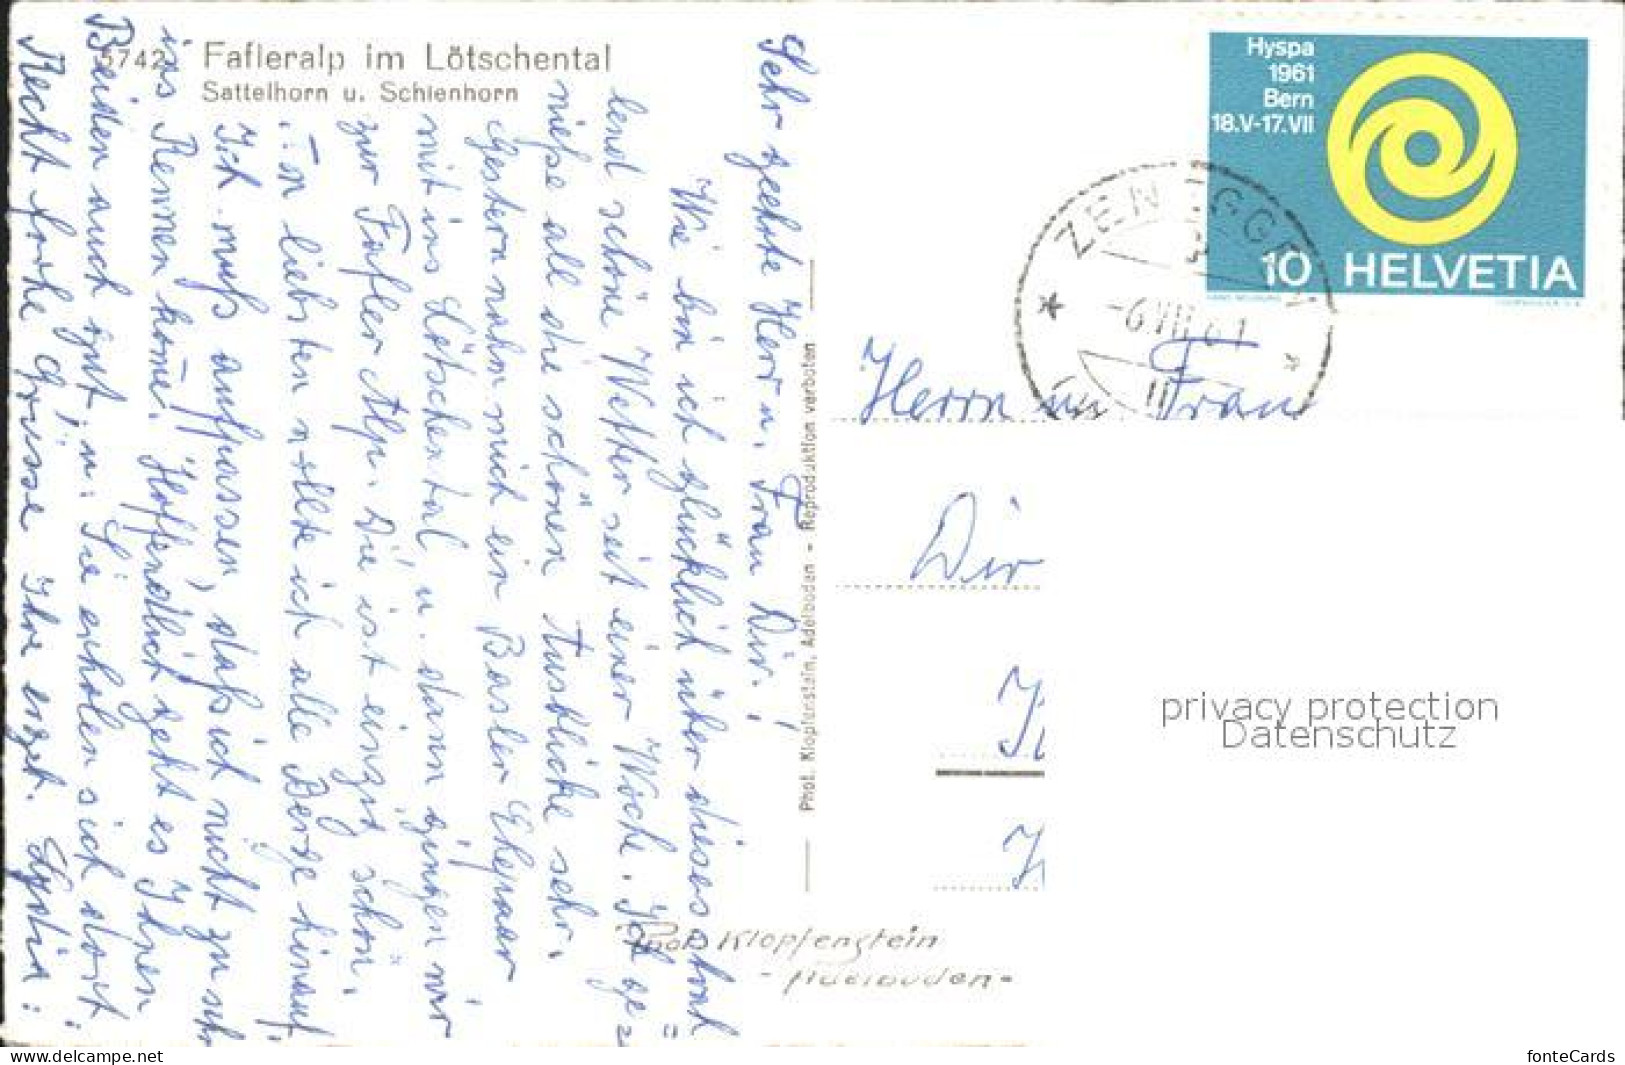 5742 Fafleralp im Lötschental
Sattelhorn u. Schienhorn
Sehr geehrte Herr u. Frau Dir.!
Wie bin ich glücklich über dieses strah=
lend schöne Wetter seit einer Woche. Ich ge=
nieße all die schönen Ausblicke sehr.
Gestern nahm mich ein Basler Ehepaar
mit ins Lötschental u. dann gingen wir
zur Fafler Alp. Die ist einzig schön.
Am liebsten wollte ich alle Berge hinauf.
Ich muß aufpassen, daß ich nicht zu sehr
ins Rennen komme. Hoffendlich geht es Ihnen
Beiden auch gut, u. Sie erholen sich dort.
Recht frohe Grüsse Ihre erget. Lydia.
Phot. Klopfenstein, Adelboden - Reproduktion verboten
Phot. Klopfenstein
- Adelboden -
Hyspa
1961
Bern
18.V-17.VII
10 HELVETIA
ZENEGGEN
-6.VIII.61
Herrn u. Frau
Dir
privacy protection
Datenschutz
www.delcampe.net
fonteCards